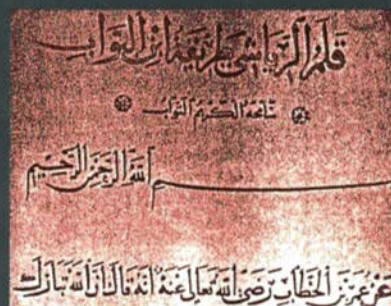 قلم الرياشي طريقة ابن البواب
سامحه الكريم التواب
الله الرحمن الرحيم
عن عمر بن الخطاب رضي الله تعالى عنه انه قال ان الله تبارك